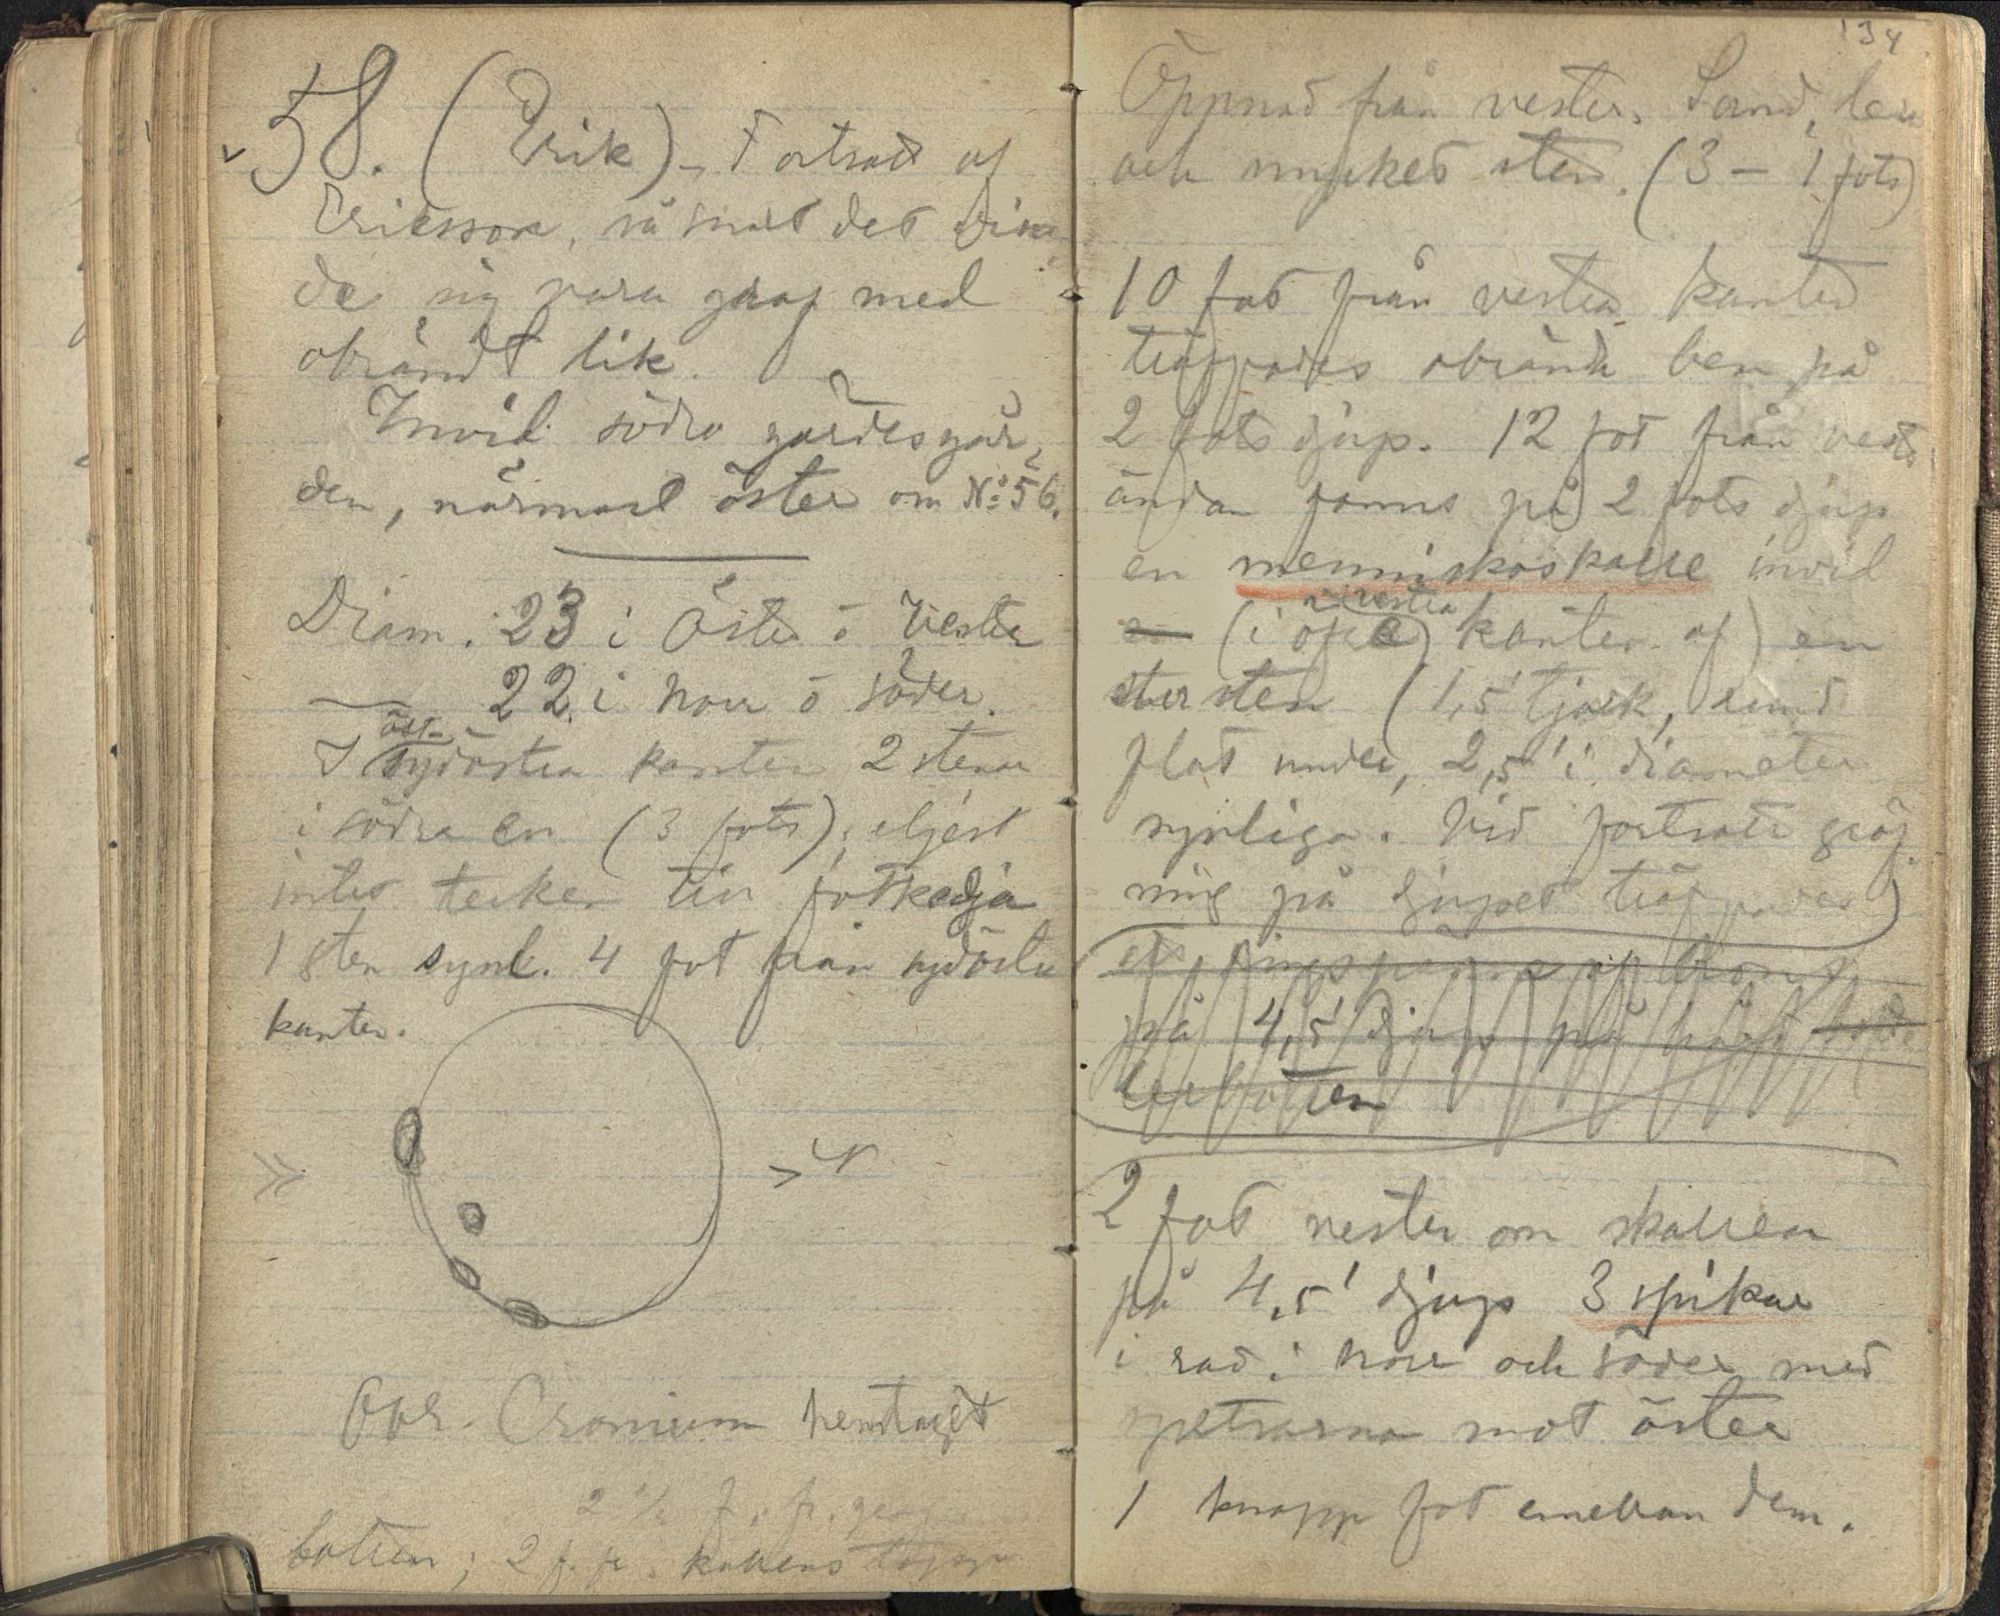 58. (Erik) – Fortsatt af
Ericsson, så snart det visa
de sig vara graf med
obrändt lik.
Invid södra gärdesgår,
den, närmast öster om No 56.
Diam. 23 i öster o vester
— 22 i norr o söder.
öst-
I sydöstra kanten 2 stenar
i södra en (3 fots); eljest
intet tecken till fotkedja
1 sten synl. 4 fot från sydöstra
kanten.
N
Obr. Cranium hemtaget
2 ½ f. fr. graf
botten; 2 f. fr. kullens topp
134
Öppnad från vester. Sand, lera
och mycket sten. (3 – 1 fots)
10 fot från vestra kanten
träffades obrända ben på
2 fots djup. 12 fot från vestra
ändan fanns på 2 fots djup
en menniskoskalle invid
vestra
(i kanten af) en
stor sten (1,5' tjock, rund
flat under, 2,5' i diameter
synliga. Vid fortsatt gräf
ning på djupet träffades
på 4,5' djup på hård
lerbotten
2 fot vester om skallen
på 4,5' djup 3 spikar
i rad i norr och söder med
spetsarna mot öster
1 knapp fot emellan dem.